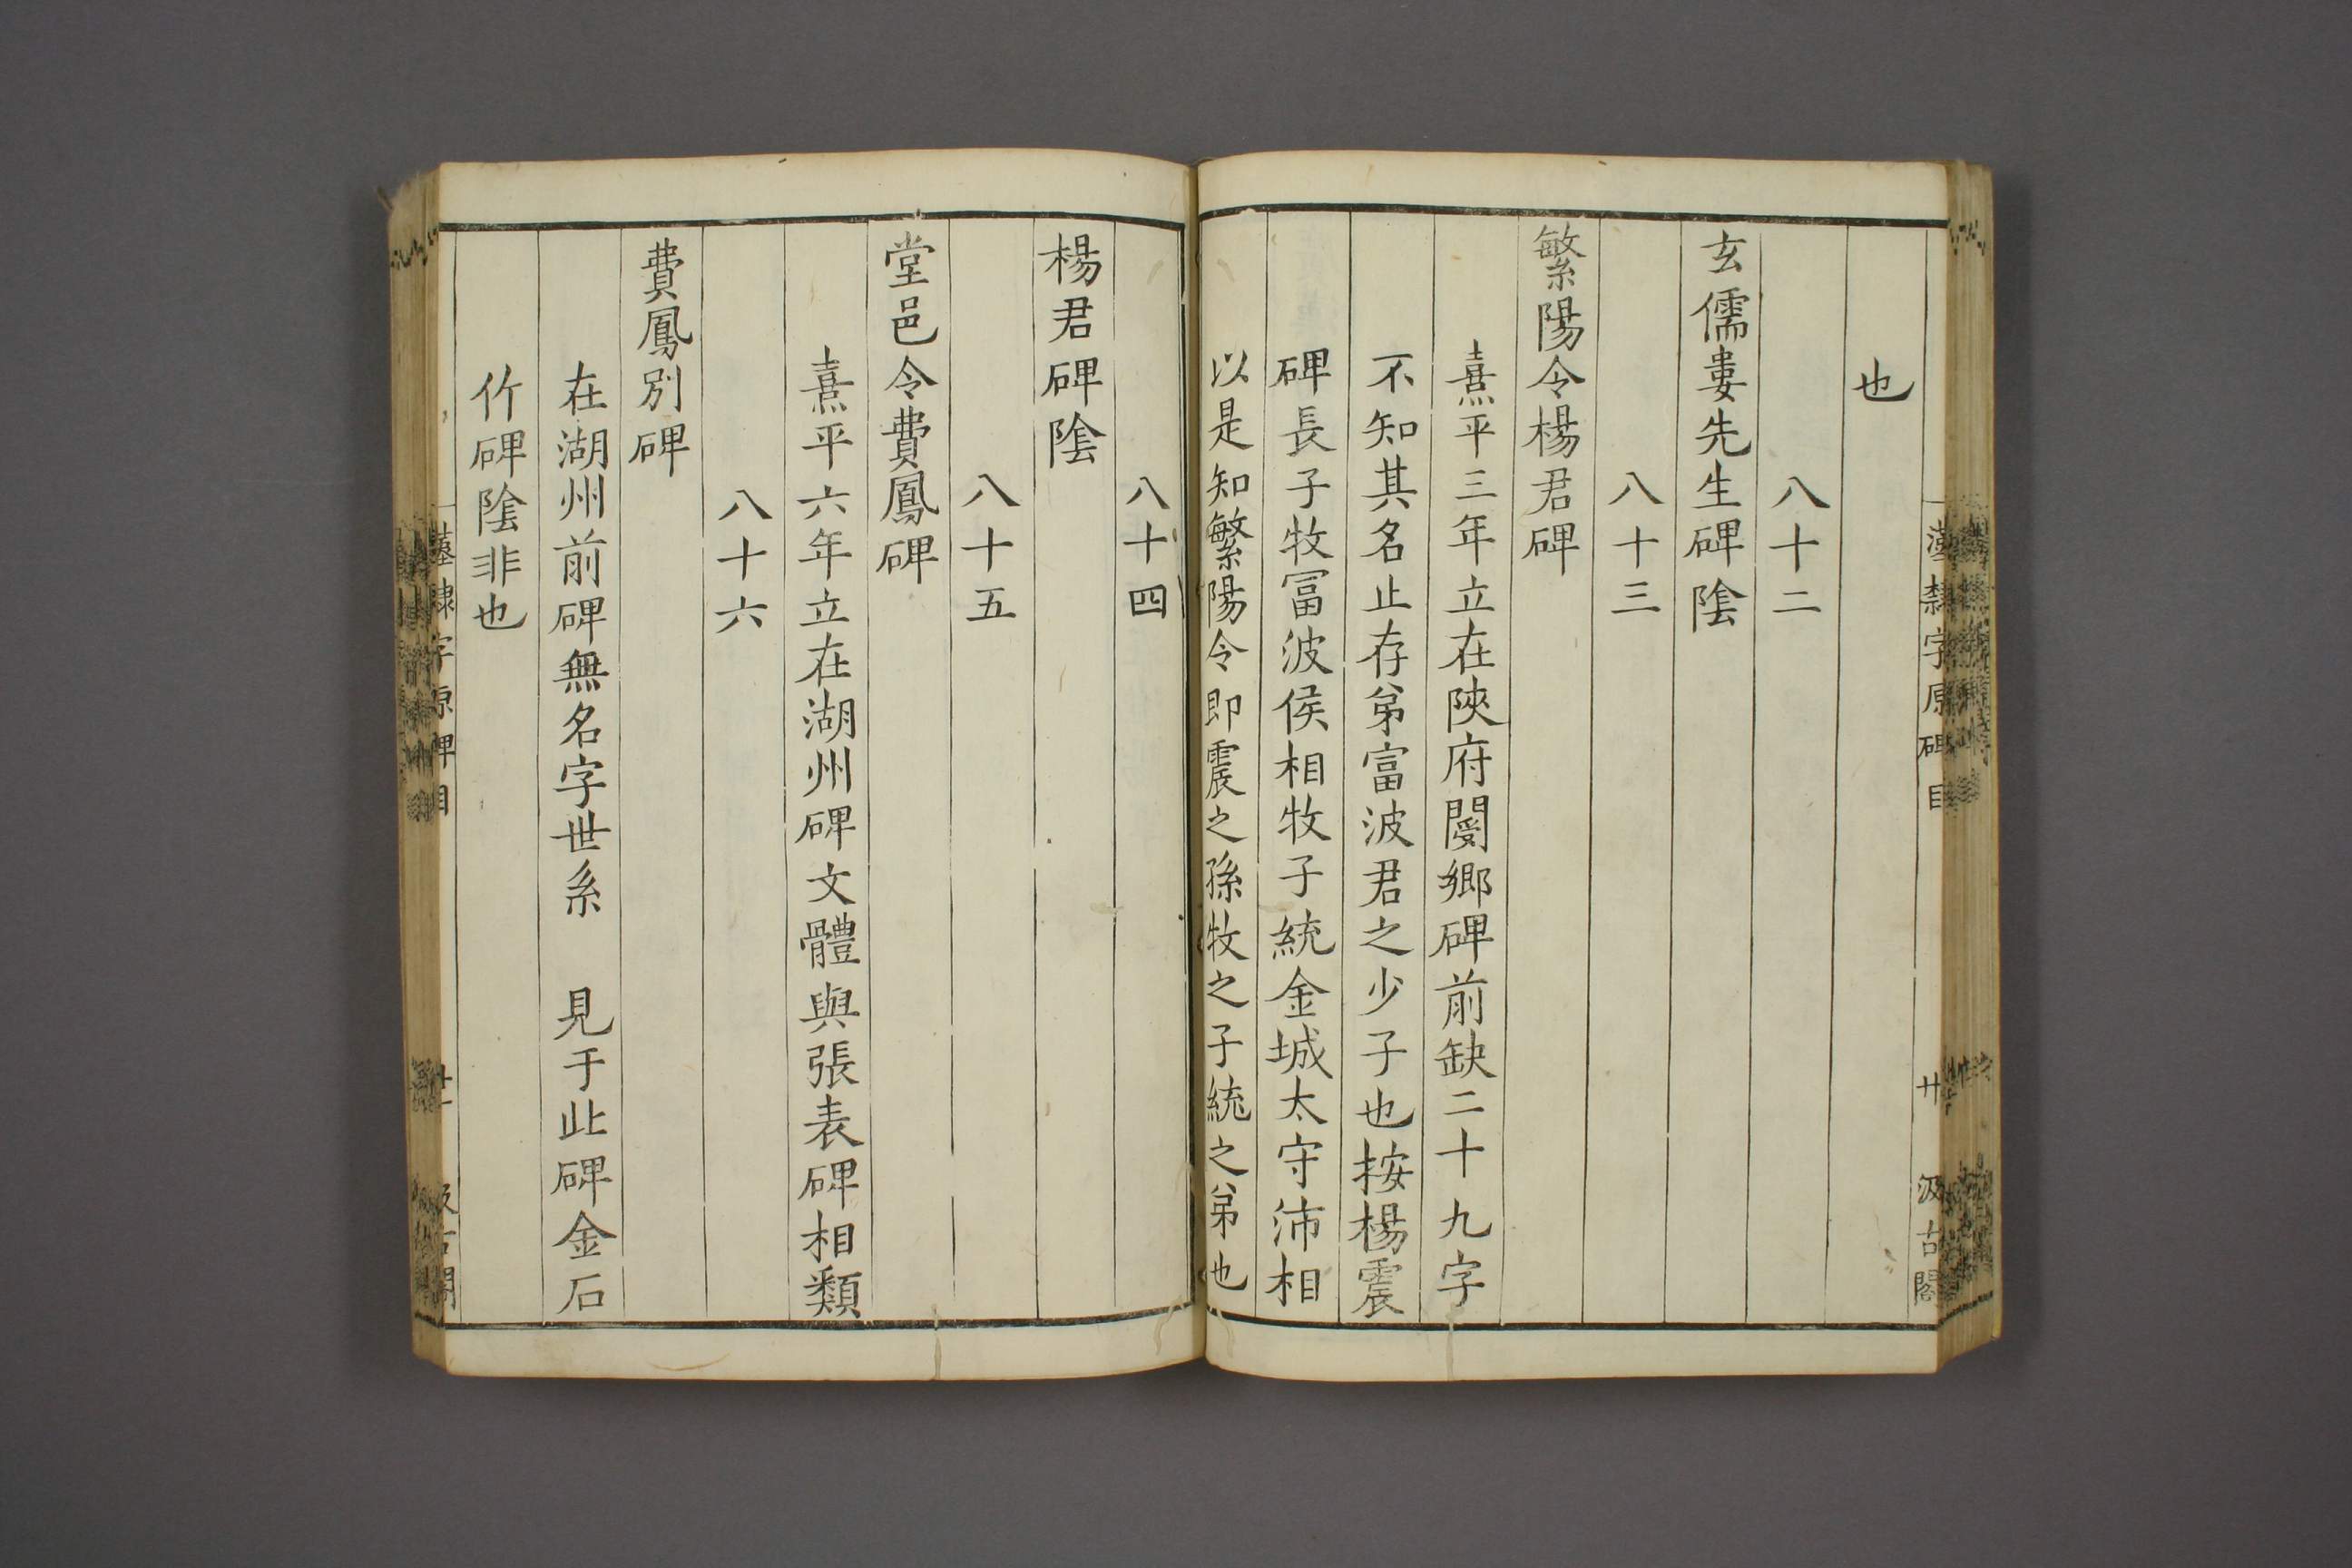 漢隸字原碑目
廿
汲古閣
也
八十二
玄儒婁先生碑陰
八十三
繁陽令楊君碑
熹平三年立在陝府閿鄉碑前缺二十九字
不知其名止存弟富波君之少子也按楊震
碑長子牧富波侯相牧子統金城太守沛相
以是知繁陽令即震之孫牧之子統之弟也
八十四
楊君碑陰
八十五
堂邑令費鳳碑
熹平六年立在湖州碑文體與張表碑相類
八十六
費鳳別碑
在湖州前碑無名字世系 見于此碑金石
作碑陰非也
漢隸字原碑目
廿一
汲古閣